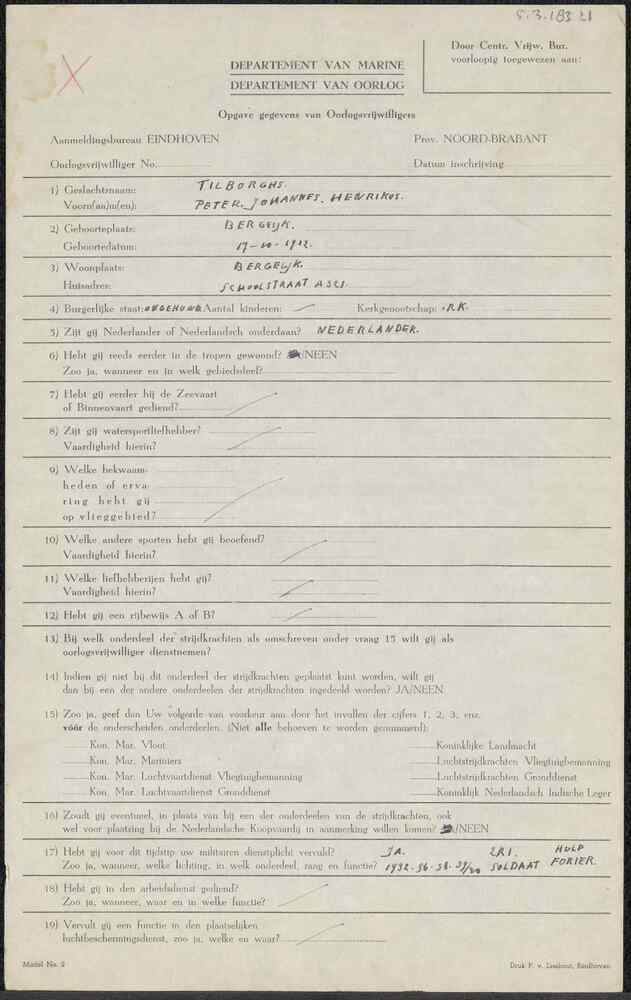 S.3.183 21
Door Centr. Vrijw. Bur.
voorloopig toegewezen aan:
DEPARTEMENT VAN MARINE
DEPARTEMENT VAN OORLOG
Opgave gegevens van Oorlogsvrijwilligers
Aanmeldingsbureau EINDHOVEN Prov. NOORD-BRABANT
Oorlogsvrijwilliger No. Datum inschrijving
1) Geslachtsnaam: TILBORGHS.
Voorn(aa)m(en): PETER. JOHANNES. HENRIKUS.
2) Geboorteplaats: BERGEIJK.
Geboortedatum: 17-10-1912.
3) Woonplaats: BERGEIJK.
Huisadres: SCHOOLSTRAAT
4) Burgerlijke staat: ONGEHUWD Aantal kinderen: Kerkgenootschap: R.K.
5) Zijt gij Nederlander of Nederlandsch onderdaan? NEDERLANDER.
6) Hebt gij reeds eerder in de tropen gewoond? /NEEN
Zoo ja, wanneer en in welk gebiedsdeel?
7) Hebt gij eerder bij de Zeevaart
of Binnenvaart gediend?
8) Zijt gij watersportliefhebber?
Vaardigheid hierin?
9) Welke bekwaam-
heden of erva-
ring hebt gij
op vlieggebied?
10) Welke andere sporten hebt gij beoefend?
Vaardigheid hierin?
11) Welke liefhebberijen hebt gij?
Vaardigheid hierin?
12) Hebt gij een rijbewijs A of B?
13) Bij welk onderdeel der strijdkrachten als omschreven onder vraag 15 wilt gij als
oorlogsvrijwilliger dienstnemen?
14) Indien gij niet bij dit onderdeel der strijdkrachten geplaatst kunt worden, wilt gij
dan bij een der andere onderdeelen der strijdkrachten ingedeeld worden? JA/NEEN
15) Zoo ja, geef dan Uw volgorde van voorkeur aan door het invullen der cijfers 1, 2, 3, enz.
vóór de onderscheiden onderdeelen. (Niet alle behoeven te worden genummerd):
Kon. Mar. Vloot Koninklijke Landmacht
Kon. Mar. Mariniers Luchtstrijdkrachten Vliegtuigbemanning
Kon. Mar. Luchtvaartdienst Vliegtuigbemanning Luchtstrijdkrachten Gronddienst
Kon. Mar. Luchtvaartdienst Gronddienst Koninklijk Nederlandsch Indische Leger
16) Zoudt gij eventueel, in plaats van bij een der onderdeelen van de strijdkrachten, ook
wel voor plaatsing bij de Nederlandsche Koopvaardij in aanmerking willen komen? /NEEN
17) Hebt gij voor dit tijdstip uw militairen dienstplicht vervuld? JA. 2RI. HULP
Zoo ja, wanneer, welke lichting, in welk onderdeel, rang en functie? 1932-36-38-39/40 SOLDAAT FORIER.
18) Hebt gij in den arbeidsdienst gediend?
Zoo ja, wanneer, waar en in welke functie?
19) Vervult gij een functie in den plaatselijken
luchtbeschermingsdienst, zoo ja, welke en waar?
Model No. 2 Druk P. v. Lieshout, Eindhoven